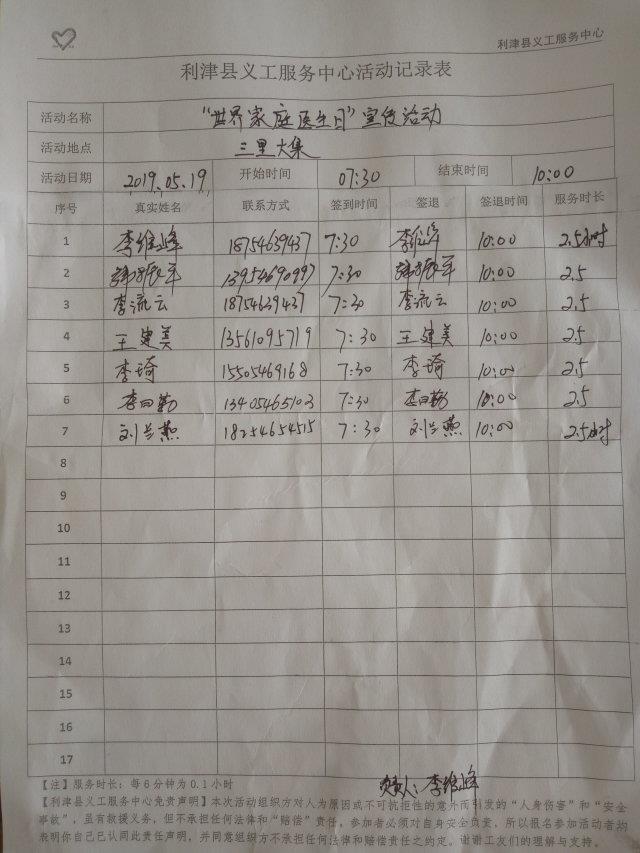 利津县义工服务中心
利津县义工服务中心活动记录表
活动名称 “世界家庭医生日”宣传活动
活动地点 三里大集
活动日期 2019.05.19 开始时间 07:30 结束时间 10:00
序号 真实姓名 联系方式 签到时间 签退 签退时间 服务时长
1 李维峰 18754639437 7:30 李维峰 10:00 2.5小时
2 7:30 10:00 2.5
3 李流云 18754639427 7:30 李流云 10:00 2.5
4 王建美 13561095719 7:30 王建美 10:00 2.5
5 李琦 15505469168 7:30 李琦 10:00 2.5
6 13405465103 7:30 10:00 2.5
7 刘兰燕 18254654515 7:30 刘兰燕 10:00 2.5小时
8
9
10
11
12
13
14
15
16
17
负责人:李维峰
【注】服务时长:每6分钟为0.1小时
【利津县义工服务中心免责声明】本次活动组织方对人为原因或不可抗拒性的意外而引发的“人身伤害”和“安全
事故”,虽有救援义务,但不承担任何法律和“赔偿”责任,参加者必须对自身安全负责,所以报名参加活动者均
表明你自己已认同此责任声明,并同意组织方不承担任何法律和赔偿责任之约定。谢谢工友们的理解与支持。